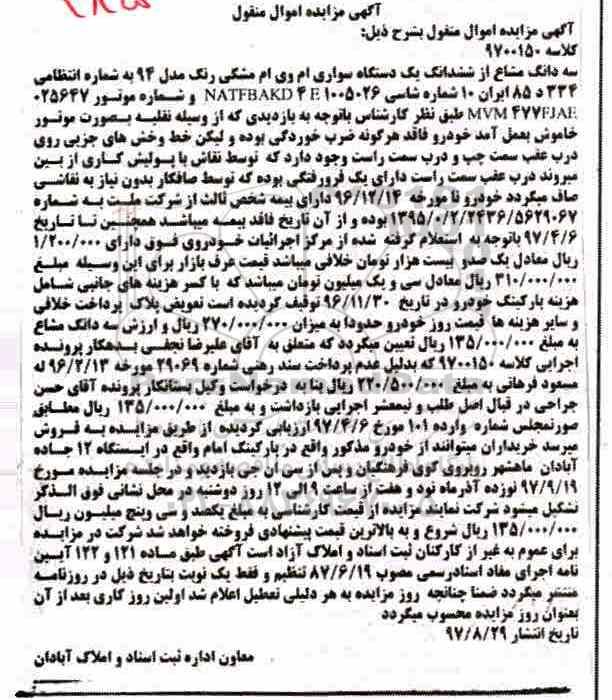 آگهی مزایده اموال منقول
آگهی مزایده اموال منقول بشرح ذیل:
کلاسه ۹۷۰۰۱۵۰
سه دانگ مشاع از ششدانگ یک دستگاه سواری ام وی ام مشکی رنگ مدل ۹۴ به شماره انتظامی
۳۳۴ د ۸۵ ایران ۱۰ شماره شاسی NATFBAKD ۴ E ۱۰۰۵۰۲۶ و شماره موتور ۰۲۵۶۴۷
MVM ۴۷۷FJAE طبق نظر کارشناس باتوجه به بازدیدی که از وسیله نقلیه بصورت موتور
خاموش بعمل آمد خودرو فاقد هرگونه ضرب خوردگی بوده و لیکن خط وخش های جزیی روی
درب عقب سمت چپ و درب سمت راست وجود دارد که توسط نقاش با پولیش کاری از بین
میروند درب عقب سمت راست دارای یک فرورفتگی بوده که توسط صافکار بدون نیاز به نقاشی
صاف میگردد خودرو تا مورخه ۹۶/۱۲/۱۴ دارای بیمه شخص ثالث از شرکت ملت به شماره
۱۳۹۵/۰/۲/۲۴۳۶/۵۶۲۹۰۶۷ بوده و از آن تاریخ فاقد بیمه میباشد همچنین تا تاریخ
۹۷/۴/۶ باتوجه به استعلام گرفته شده از مرکز اجرائیات خودروی فوق دارای ۱/۲۰۰/۰۰۰
ریال معادل یک صدو بیست هزار تومان خلافی میباشد قیمت عرف بازار برای این وسیله مبلغ
۳۱۰/۰۰۰/۰۰۰ ریال معادل سی و یک میلیون تومان میباشد که با کسر هزینه های جانبی شامل
هزینه پارکینگ خودرو در تاریخ ۹۶/۱۱/۳۰ توقیف گردیده است تعویض پلاک پرداخت خلافی
و سایر هزینه ها قیمت روز خودرو حدودا به میزان ۲۷۰/۰۰۰/۰۰۰ ریال و ارزش سه دانگ مشاع
به مبلغ ۱۳۵/۰۰۰/۰۰۰ ریال تعیین میگردد که متعلق به آقای علیرضا نجفی بدهکار پرونده
اجرایی کلاسه ۹۷۰۰۱۵۰ که بدلیل عدم پرداخت سند رهنی شماره ۲۹۰۶۹ مورخه ۹۶/۲/۱۳ له
مسعود فرهانی به مبلغ ۲۲۰/۵۰۰/۰۰۰ ریال بنا به درخواست وکیل بستانکار پرونده آقای حسن
جراحی در قبال اصل طلب و نیمعشر اجرایی بازداشت و به مبلغ ۱۳۵/۰۰۰/۰۰۰ ریال مطابق
صورتمجلس شماره وارده ۱۰۱ مورخ ۹۷/۴/۶ ارزیابی گردیده از طریق مزایده به فروش
میرسد خریداران میتوانند از خودرو مذکور واقع در پارکینگ امام واقع در ایستگاه ۱۲ جاده
آبادان ماهشهر روبروی کوی فرهنگیان و پمپ از سی ان جی بازدید و در جلسه مزایده مورخ
۹۷/۹/۱۹ نوزده آذرماه نود و هفت از ساعت ۹ الی ۱۲ روز دوشنبه در محل نشانی فوق الذکر
تشکیل میشود شرکت نمایند مزایده از قیمت کارشناسی به مبلغ یکصد و سی وپنج میلیون ریال
۱۳۵/۰۰۰/۰۰۰ ریال شروع و به بالاترین قیمت پیشنهادی فروخته خواهد شد شرکت در مزایده
برای عموم به غیر از کارکنان ثبت اسناد و املاک آزاد است آگهی طبق ماده ۱۲۱ و ۱۲۲ آیین
نامه اجرای مفاد اسنادرسمی مصوب ۸۷/۶/۱۹ تنظیم و فقط یک نوبت بتاریخ ذیل در روزنامه
منتشر میگردد ضمنا چنانچه روز مزایده به هر دلیلی تعطیل اعلام شد اولین روز کاری بعد از آن
بعنوان روز مزایده محسوب میگردد
تاریخ انتشار ۹۷/۸/۲۹
معاون اداره ثبت اسناد و املاک آبادان